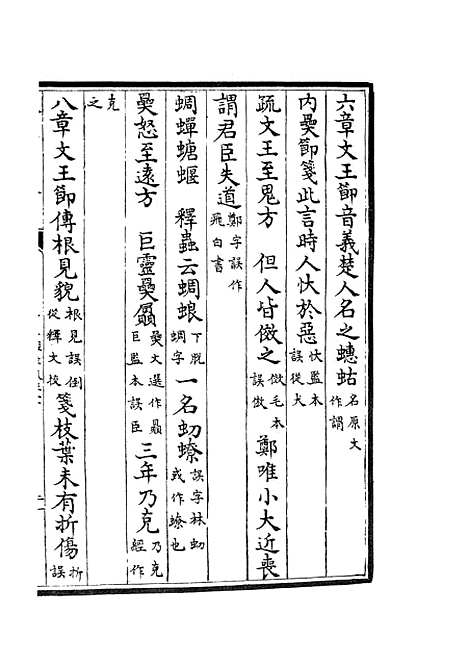 六章文王節音義楚人名之蟪蛄名原文作謂
内奰節箋此言時人忕於惡忕監本誤從犬
疏文王至鬼方　但人皆傚之傚毛本誤倣　鄭唯小大近喪
謂君臣失道鄭字誤作飛白書
蜩蟬螗蝘　釋蟲云蜩蜋蜩字下脱　一名虭蟧虭字林或作蟟也
奰怒至遠方　巨靈奰屭奰文選作贔巨監本誤臣　三年乃克乃克經作
克之
八章文王節傳根見貌根見誤倒從釋文校　箋枝葉未有折傷折誤